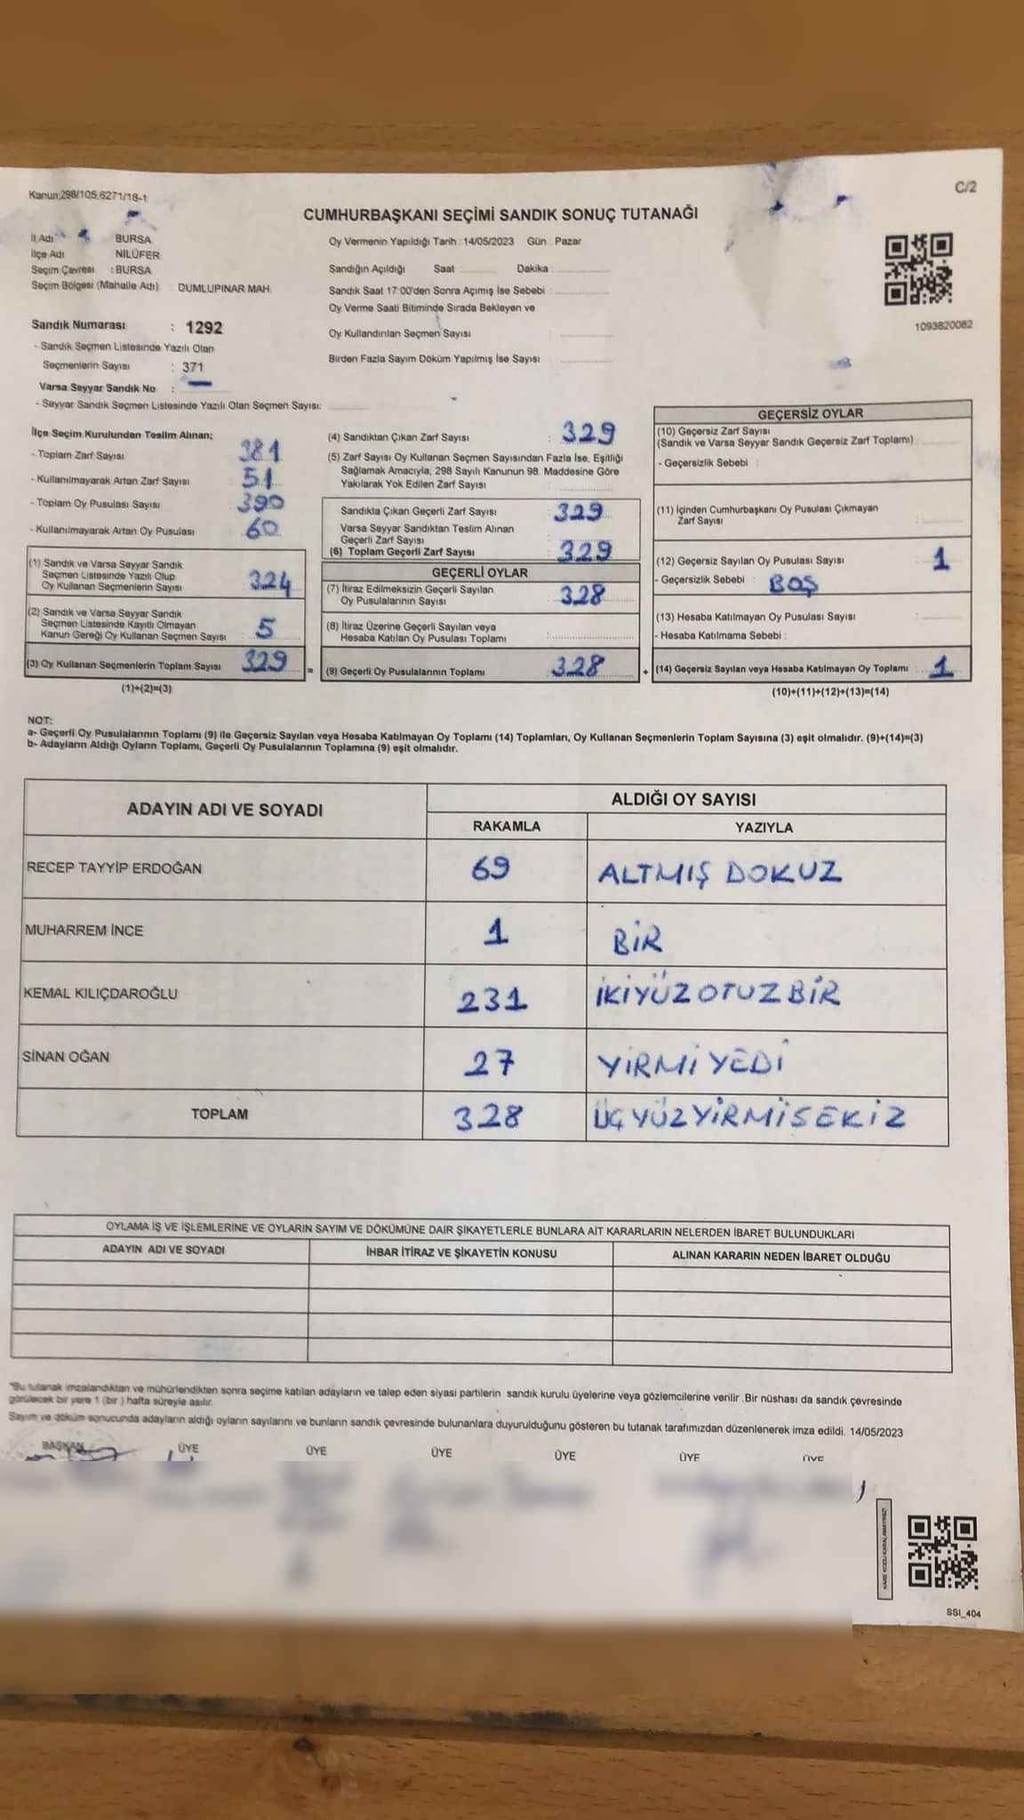 Kanun:298/105,6271/18-1
C/2
CUMHURBAŞKANI SEÇİMİ SANDIK SONUÇ TUTANAĞI
İl Adı : BURSA
İlçe Adı NİLÜFER
Seçim Çevresi : BURSA
Seçim Bölgesi (Mahalle Adı) DUMLUPINAR MAH.
Oy Vermenin Yapıldığı Tarih : 14/05/2023 Gün : Pazar
Sandığın Açıldığı Saat Dakika :
Sandık Saat 17:00'den Sonra Açılmış İse Sebebi :
Oy Verme Saati Bitiminde Sırada Bekleyen ve
Oy Kullandırılan Seçmen Sayısı
Birden Fazla Sayım Döküm Yapılmış İse Sayısı
1093820082
Sandık Numarası : 1292
- Sandık Seçmen Listesinde Yazılı Olan
Seçmenlerin Sayısı : 371
Varsa Seyyar Sandık No : —
- Seyyar Sandık Seçmen Listesinde Yazılı Olan Seçmen Sayısı:
İlçe Seçim Kurulundan Teslim Alınan;
- Toplam Zarf Sayısı 381
- Kullanılmayarak Artan Zarf Sayısı 51
- Toplam Oy Pusulası Sayısı 390
- Kullanılmayarak Artan Oy Pusulası 60
(1) Sandık ve Varsa Seyyar Sandık
Seçmen Listesinde Yazılı Olup
Oy Kullanan Seçmenlerin Sayısı 324
(2) Sandık ve Varsa Seyyar Sandık
Seçmen Listesinde Kayıtlı Olmayan
Kanun Gereği Oy Kullanan Seçmen Sayısı 5
(3) Oy Kullanan Seçmenlerin Toplam Sayısı 329
(1)+(2)=(3)
(4) Sandıktan Çıkan Zarf Sayısı : 329
(5) Zarf Sayısı Oy Kullanan Seçmen Sayısından Fazla İse, Eşitliği
Sağlamak Amacıyla, 298 Sayılı Kanunun 98. Maddesine Göre
Yakılarak Yok Edilen Zarf Sayısı
Sandıkta Çıkan Geçerli Zarf Sayısı 329
Varsa Seyyar Sandıktan Teslim Alınan
Geçerli Zarf Sayısı
(6) Toplam Geçerli Zarf Sayısı 329
GEÇERLİ OYLAR
(7) İtiraz Edilmeksizin Geçerli Sayılan
Oy Pusulalarının Sayısı 328
(8) İtiraz Üzerine Geçerli Sayılan veya
Hesaba Katılan Oy Pusulası Toplamı
= (9) Geçerli Oy Pusulalarının Toplamı 328
GEÇERSİZ OYLAR
(10) Geçersiz Zarf Sayısı
(Sandık ve Varsa Seyyar Sandık Geçersiz Zarf Toplamı)
- Geçersizlik Sebebi :
(11) İçinden Cumhurbaşkanı Oy Pusulası Çıkmayan
Zarf Sayısı
(12) Geçersiz Sayılan Oy Pusulası Sayısı 1
- Geçersizlik Sebebi BOŞ
(13) Hesaba Katılmayan Oy Pusulası Sayısı
- Hesaba Katılmama Sebebi :
+ (14) Geçersiz Sayılan veya Hesaba Katılmayan Oy Toplamı 1
(10)+(11)+(12)+(13)=(14)
NOT:
a- Geçerli Oy Pusulalarının Toplamı (9) ile Geçersiz Sayılan veya Hesaba Katılmayan Oy Toplamı (14) Toplamları, Oy Kullanan Seçmenlerin Toplam Sayısına (3) eşit olmalıdır. (9)+(14)=(3)
b- Adayların Aldığı Oyların Toplamı, Geçerli Oy Pusulalarının Toplamına (9) eşit olmalıdır.
ADAYIN ADI VE SOYADI ALDIĞI OY SAYISI
RAKAMLA YAZIYLA
RECEP TAYYİP ERDOĞAN 69 ALTMIŞ DOKUZ
MUHARREM İNCE 1 BİR
KEMAL KILIÇDAROĞLU 231 İKİYÜZOTUZBİR
SİNAN OĞAN 27 YİRMİYEDİ
TOPLAM 328 ÜÇYÜZYİRMİSEKİZ
OYLAMA İŞ VE İŞLEMLERİNE VE OYLARIN SAYIM VE DÖKÜMÜNE DAİR ŞİKAYETLERLE BUNLARA AİT KARARLARIN NELERDEN İBARET BULUNDUKLARI
ADAYIN ADI VE SOYADI İHBAR İTİRAZ VE ŞİKAYETİN KONUSU ALINAN KARARIN NEDEN İBARET OLDUĞU
"Bu tutanak imzalandıktan ve mühürlendikten sonra seçime katılan adayların ve talep eden siyasi partilerin sandık kurulu üyelerine veya gözlemcilerine verilir .Bir nüshası da sandık çevresinde
görülecek bir yere 1 (bir ) hafta süreyle asılır.
Sayım ve döküm sonucunda adayların aldığı oyların sayılarını ve bunların sandık çevresinde bulunanlara duyurulduğunu gösteren bu tutanak tarafımızdan düzenlenerek imza edildi. 14/05/2023
BAŞKAN ÜYE ÜYE ÜYE ÜYE ÜYE ÜYE
SSI_404